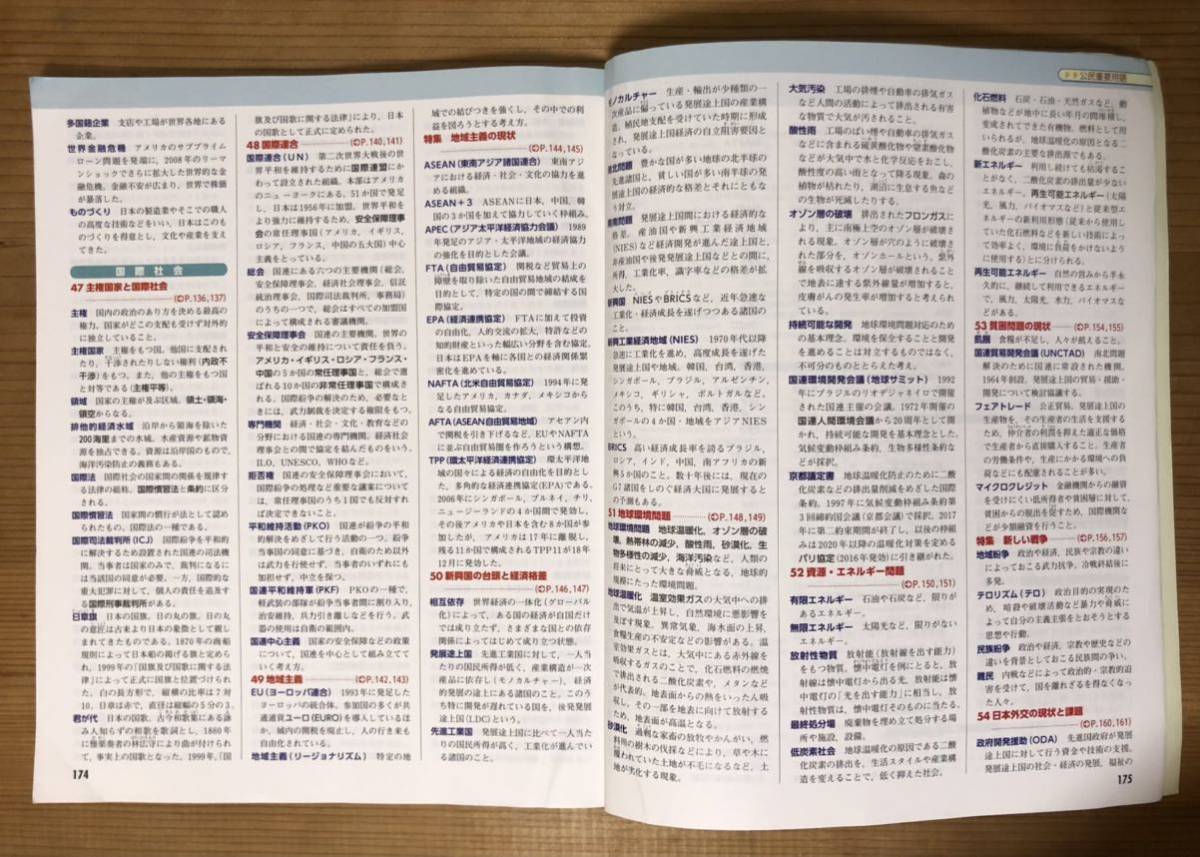 多国籍企業 支店や工場が世界各地にある
企業。
世界金融危機 アメリカのサブプライム
ローン問題を発端に、2008年のリーマ
ンショックでさらに拡大した世界的な金
融危機。金融不安が広まり、世界で株価
が暴落した。
ものづくり 日本の製造業やそこでの職人
の高度な技術などをいい、日本はこのも
のづくりを得意とし、文化や産業を支え
てきた。
国際社会
47 主権国家と国際社会
(©P.136,137)
主権 国内の政治のあり方を決める最高の
権力。国家がどこの支配も受けず対外的
に独立していること。
主権国家 主権をもつ国。他国に支配され
たり、干渉されたりしない権利(内政不
干渉)をもつ。また、他の主権をもつ国
と対等である(主権平等)。
領域 国家の主権が及ぶ区域。領土・領海・
領空からなる。
排他的経済水域 沿岸から領海を除いた
200海里までの水域。水産資源や鉱物資
源を独占できる。資源は沿岸国のもので、
海洋汚染防止の義務もある。
国際法 国際社会の国家間の関係を規律す
る法律の総称。国際慣習法と条約に区分
される。
国際慣習法 国家間の慣行が法として認め
られたもの。国際法の一種である。
国際司法裁判所(ICJ) 国際紛争を平和的
に解決するため設置された国連の司法機
関。当事者は国家のみで、裁判になるに
は当該国の同意が必要。一方、国際的な
重大犯罪に対して、個人の責任を追及す
る国際刑事裁判所がある。
日章旗 日本の国旗。日の丸の旗。日の丸
の意匠は古来より日本の象徴として親し
まれてきたものである。1870年の商船
規則によって日本船の掲げる旗と定めら
れ、1999年の「国旗及び国歌に関する法
律」によって正式に国旗と位置づけられ
た。白の長方形で、縦横の比率は7対
10。日章は赤で、直径は縦幅の5分の3。
君が代 日本の国歌。古今和歌集にある詠
み人知らずの和歌を歌詞とし、1880年
に雅楽奏者の林広守により曲が付けられ
て、事実上の国歌となった。1999年、「国
174
旗及び国歌に関する法律」により、日本
の国歌として正式に定められた。
48 国際連合 (©P.140,141)
国際連合(UN) 第二次世界大戦後の世
界平和を維持するために国際連盟にか
わって設立された組織。本部はアメリカ
のニューヨークにある。51か国で発足
し、日本は1956年に加盟。世界平和を
より強力に維持するため、安全保障理事
会の常任理事国(アメリカ、イギリス、
ロシア、フランス、中国の五大国)中心
主義をとっている。
総会 国連にある六つの主要機関(総会、
安全保障理事会、経済社会理事会、信託
統治理事会、国際司法裁判所、事務局)
のうちの一つで、総会はすべての加盟国
によって構成される審議機関。
安全保障理事会 国連の主要機関。世界の
平和と安全の維持について責任を負う。
アメリカ・イギリス・ロシア・フランス・
中国の5か国の常任理事国と、総会で選
ばれる10か国の非常任理事国で構成さ
れる。国際紛争の解決のため、必要なと
きには、武力制裁を決定する権限をもつ。
専門機関 経済・社会・文化・教育などの
分野における国連の専門機関。経済社会
理事会との間で協定を結んだものをいう。
ILO、UNESCO、WHOなど。
拒否権 国連の安全保障理事会において、
国際紛争の処理など重要な議案について
は、常任理事国のうち1国でも反対すれ
ば決定できないこと。
平和維持活動(PKO) 国連が紛争の平和
的解決をめざして行う活動の一つ。紛争
当事国の同意に基づき、自衛のため以外
は武力を行使せず、当事者のいずれにも
加担せず、中立を保つ。
国連平和維持軍(PKF) PKOの一種で、
軽武装の部隊が紛争当事者間に割り入り、
停戦維持、兵力引き離しなどを行う。武
器の使用は自衛の範囲内。
国連中心主義 国連の安全保障などの政策
について、国連を中心として組み立てて
いく考え方。
49 地域主義 (©P.142,143)
EU(ヨーロッパ連合) 1993年に発足した
ヨーロッパの統合体。参加国の多くが共
通通貨ユーロ(EURO)を導入しているほ
か、域内の関税を廃止し、人の行き来も
自由化されている。
地域主義(リージョナリズム) 特定の地
域での結びつきを強くし、その中での利
益を図ろうとする考え方。
特集 地域主義の現状
(©P.144,145)
ASEAN(東南アジア諸国連合) 東南アジ
アにおける経済・社会・文化の協力を進
める組織。
ASEAN+3 ASEANに日本、中国、韓
国の3か国を加えて協力していく枠組み。
APEC(アジア太平洋経済協力会議) 1989
年発足のアジア・太平洋地域の経済協力
の強化を目的とした会議。
FTA(自由貿易協定) 関税など貿易上の
障壁を取り除いた自由貿易地域の結成を
目的として、特定の国の間で締結する国
際協定。
EPA(経済連携協定) FTAに加えて投資
の自由化、人的交流の拡大、特許などの
知的財産といった幅広い分野を含む協定。
日本はEPAを軸に各国との経済関係緊
密化を進めている。
NAFTA(北米自由貿易協定) 1994年に発
足したアメリカ、カナダ、メキシコから
なる自由貿易協定。
AFTA(ASEAN自由貿易地域) アセアン内
で関税を引き下げるなど、EUやNAFTA
に並ぶ自由貿易圏を作ろうという構想。
TPP(環太平洋経済連携協定) 環太平洋地
域の国々による経済の自由化を目的とし
た、多角的な経済連携協定(EPA)である。
2006年にシンガポール、ブルネイ、チリ、
ニュージーランドの4か国間で発効し、
その後アメリカや日本を含む8か国が参
加したが、アメリカは17年に離脱し、
残る11か国で構成されるTPP11が18年
12月に発効した。
50 新興国の台頭と経済格差
(©P.146,147)
相互依存 世界経済の一体化(グローバル
化)によって、ある国の経済が自国だけ
では成り立たず、さまざまな国との依存
関係によってはじめて成り立つ状態。
発展途上国 先進工業国に対して、一人当
たりの国民所得が低く、産業構造が一次
産品に依存し(モノカルチャー)、経済
的発展の途上にある国のこと。このう
ち特に開発が遅れている国を、後発発展
途上国(LDC)という。
先進工業国 発展途上国に比べて一人当た
りの国民所得が高く、工業化が進んでい
る諸国のこと。
公民重要用語
モノカルチャー 生産・輸出が少種類の一
次産品に偏っている発展途上国の産業構
造。植民地支配を受けていた時期に形成
され、発展途上国経済の自立阻害要因と
なっている。
南北問題 豊かな国が多い地球の北半球の
先進諸国と、貧しい国が多い南半球の発
展途上国の経済的な格差とそれにともな
う対立。
南南問題 発展途上国間における経済的な
格差。産油国や新興工業経済地域
(NIES)など経済開発が進んだ途上国と、
非産油国や後発発展途上国などとの間に、
所得、工業化率、識字率などの格差が拡
大した。
新興国 NIESやBRICSなど、近年急速な
工業化・経済成長を遂げつつある諸国の
こと。
新興工業経済地域(NIES) 1970年代以降
急速に工業化を進め、高度成長を遂げた
発展途上国や地域。韓国、台湾、香港、
シンガポール、ブラジル、アルゼンチン、
メキシコ、ギリシャ、ポルトガルなど。
このうち、特に韓国、台湾、香港、シン
ガポールの4か国・地域をアジアNIES
という。
BRICS 高い経済成長率を誇るブラジル、
ロシア、インド、中国、南アフリカの新
興5か国のこと。数十年後には、現在の
G7諸国をしのぐ経済大国に発展すると
の予測もある。
51 地球環境問題 (©P.148,149)
地球環境問題 地球温暖化、オゾン層の破
壊、熱帯林の減少、酸性雨、砂漠化、生
物多様性の減少、海洋汚染など、人類の
将来にとって大きな脅威となる、地球的
規模にわたった環境問題。
地球温暖化 温室効果ガスの大気中への排
出で気温が上昇し、自然環境に悪影響を
及ぼす現象。異常気象、海水面の上昇、
食糧生産の不安定などの影響がある。温
室効果ガスとは、大気中にある赤外線を
吸収するガスのことで、化石燃料の燃焼
で排出される二酸化炭素や、メタンなど
が代表的。地表面からの熱をいったん吸
収し、その一部を地表に向けて放射する
ため、地表面が高温となる。
砂漠化 過剰な家畜の放牧やかんがい、燃
料用の樹木の伐採などにより、草や木に
覆われていた土地が不毛になるなど、土
地が劣化する現象。
大気汚染 工場の排煙や自動車の排気ガス
など人間の活動によって排出される有害
な物質で大気が汚されること。
酸性雨 工場のばい煙や自動車の排気ガス
などに含まれる硫黄酸化物や窒素酸化物
などが大気中で水と化学反応をおこし、
酸性度の高い雨となって降る現象。森の
樹木が枯れたり、湖沼に生息する魚など
の生物が死滅したりする。
オゾン層の破壊 排出されたフロンガスに
より、主に南極上空のオゾン層が破壊さ
れる現象。オゾン層が穴のように破壊さ
れた部分を、オゾンホールという。紫外
線を吸収するオゾン層が破壊されること
で地表に達する紫外線量が増加すると、
皮膚がんの発生率が増加すると考えられ
ている。
持続可能な開発 地球環境問題対応のため
の基本理念。環境を保全することと開発
を進めることは対立するものではなく、
不可分のものととらえた考え。
国連環境開発会議(地球サミット) 1992
年にブラジルのリオデジャネイロで開催
された国連主催の会議。1972年開催の
国連人間環境会議から20周年として開
かれ、持続可能な開発を基本理念とした。
気候変動枠組み条約、生物多様性条約な
どが採択。
京都議定書 地球温暖化防止のために二酸
化炭素などの排出量削減をめざした国際
条約。1997年に気候変動枠組み条約第
3回締約国会議(京都会議)で採択。2017
年に第二約束期間が終了し、以後の枠組
みは2020年以降の温暖化対策を定める
パリ協定(2016年発効)に引き継がれた。
52 資源・エネルギー問題
(©P.150,151)
有限エネルギー 石油や石炭など、限りが
あるエネルギー。
無限エネルギー 太陽光など、限りがない
エネルギー。
放射性物質 放射能(放射線を出す能力)
をもつ物質。懐中電灯を例にとると、放
射線は懐中電灯から出る光、放射能は懐
中電灯の「光を出す能力」に相当し、放
射性物質は、懐中電灯そのものに当たる。
最終処分場 廃棄物を埋め立て処分する場
所や施設、設備。
低炭素社会 地球温暖化の原因である二酸
化炭素の排出を、生活スタイルや産業構
造を変えることで、低く抑えた社会。
化石燃料 石炭・石油・天然ガスなど、動
植物などが地中に長い年月の間堆積し、
変成されてできた有機物。燃料として用
いられるが、地球温暖化の原因となる二
酸化炭素の主要な排出源でもある。
新エネルギー 利用し続けても枯渇するこ
とがなく、二酸化炭素の排出量が少ない
エネルギー。再生可能エネルギー(太陽
光、風力、バイオマスなど)と従来型エ
ネルギーの新利用形態(従来から使用し
ていた化石燃料などを新しい技術によっ
て効率よく、環境に負荷をかけないよう
に使用する)とに分けられる。
再生可能エネルギー 自然の営みから半永
久的に、継続して利用できるエネルギー
で、風力、太陽光、水力、バイオマスな
どがある。
53 貧困問題の現状 (©P.154,155)
飢餓 食料が不足し、人々が飢えること。
国連貿易開発会議(UNCTAD) 南北問題
解決のために国連に常設された機関。
1964年創設。発展途上国の貿易・援助・
開発について検討協議する。
フェアトレード 公正貿易。発展途上国の
生産物を、その生産者の生活を支援する
ため、仲介者の利潤を抑えた適正な価格
で、生産者から直接購入すること。生産者
の労働条件や、生産にかかる環境への負
荷などにも配慮されることがある。
マイクロクレジット 金融機関からの融資
を受けにくい低所得者や貧困層に対して、
貧困からの脱出を促すため、国際機関な
どが少額融資を行うこと。
特集 新しい戦争 (©P.156,157)
地域紛争 政治や経済、民族や宗教の違い
によっておこる武力抗争。冷戦終結後に
多発。
テロリズム(テロ) 政治目的の実現のた
め、暗殺や破壊活動など暴力や脅威に
よって自分の主義主張をとおそうとする
思想や行動。
民族紛争 政治や経済、宗教や歴史などの
違いを背景としておこる民族間の争い。
難民 内戦などによって政治的・宗教的迫
害を受けて、国を離れざるを得なくなっ
た人々。
54 日本外交の現状と課題
(©P.160,161)
政府開発援助(ODA) 先進国政府が発展
途上国に対して行う資金や技術の支援。
発展途上国の社会・経済の発展、福祉の
175